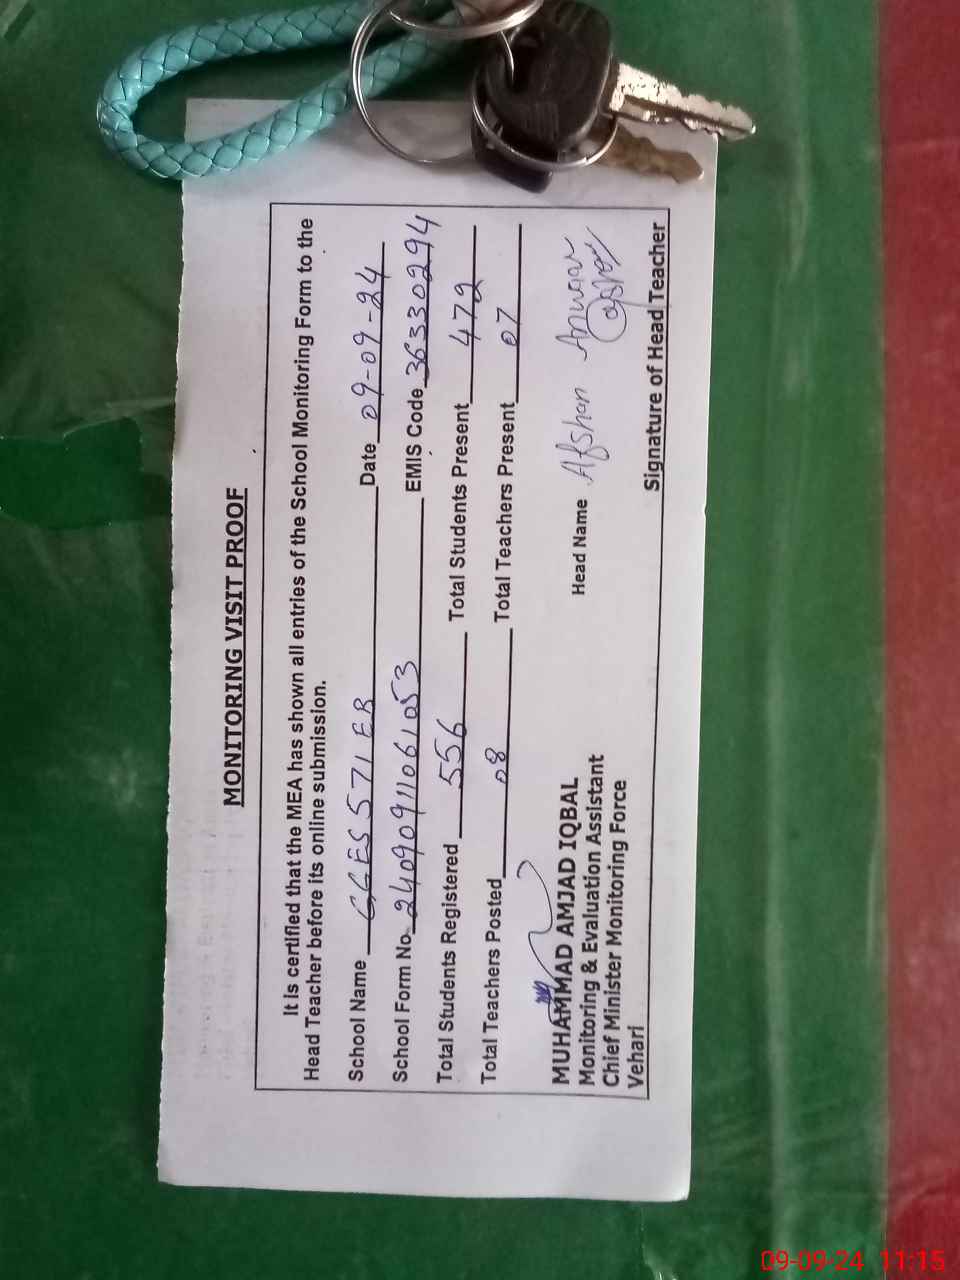 MONITORING VISIT PROOF
It is certified that the MEA has shown all entries of the School Monitoring Form to the
Head Teacher before its online submission.
School Name GGES 571 EB Date 09-09-24
School Form No. 24090911061053 EMIS Code 36330294
Total Students Registered 556 Total Students Present 472
Total Teachers Posted 08 Total Teachers Present 07
MUHAMMAD AMJAD IQBAL
Monitoring & Evaluation Assistant
Chief Minister Monitoring Force
Vehari
Head Name Afshan Anwar
Signature of Head Teacher
09-09-24 11:15